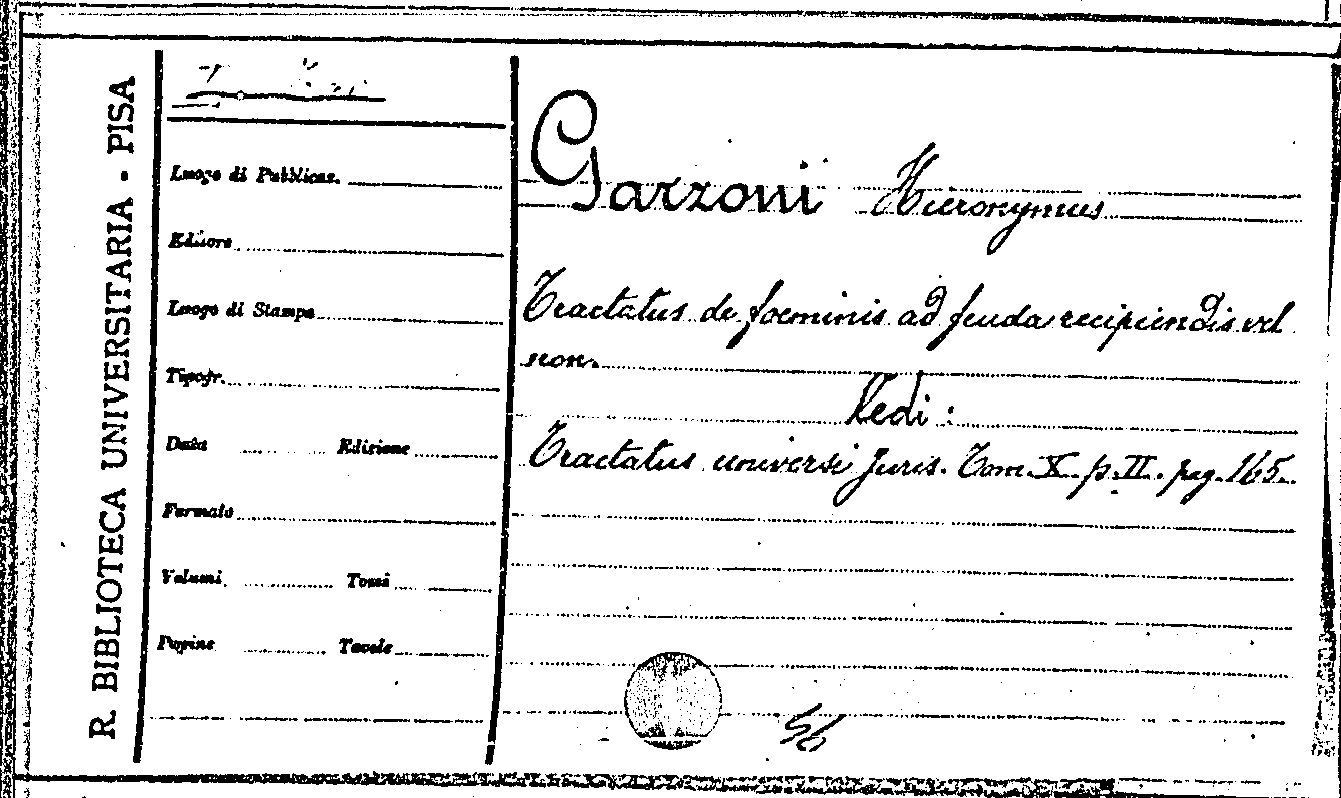 R. BIBLIOTECA UNIVERSITARIA - PISA
Luogo di Pubblicaz.
Editore
Luogo di Stampa
Tipogr.
Data Edizione
Formato
Volumi Tomi
Pagine Tavole
Garzoni Hieronymus
Tractatus de foeminis ad feuda recipiendis vel
non.
Vedi:
Tractatus universi Juris. Tom. X. p. II. pag. 165.
56